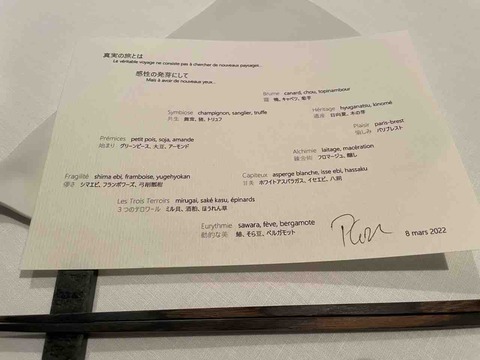 真実の旅とは
Le véritable voyage ne consiste pas à chercher de nouveaux paysages
感性の発芽にして
Mais à avoir de nouveaux yeux...
Brume canard, chou, topinambour
霞 鴨、キャベツ、菊芋
Symbiose champignon, sanglier, truffe
共生 舞茸、猪、トリュフ
Héritage hyuganatsu, kinumé
遺産 日向夏、木の芽
Plaisir paris-brest
愉しみ パリブレスト
Prémices petit pois, soja, amande
始まり グリーンピース、大豆、アーモンド
Alchimie laitage, macération
錬金術 フロマージュ、醸し
Fragilité shima ebi, framboise, yugehyokan
儚さ シマエビ、フランボワーズ、弓削瓢柑
Capiteux asperge blanche, isse ebi, hassaku
ホワイトアスパラガス、イセエビ、八朔
Les Trois Terroirs mirugai, saké kasu, épinards
3つのテロワール ミル貝、酒粕、ほうれん草
Eurythmie sawara, fève, bergamote
動的な美 鰆、そら豆、ベルガモット
8 mars 2022